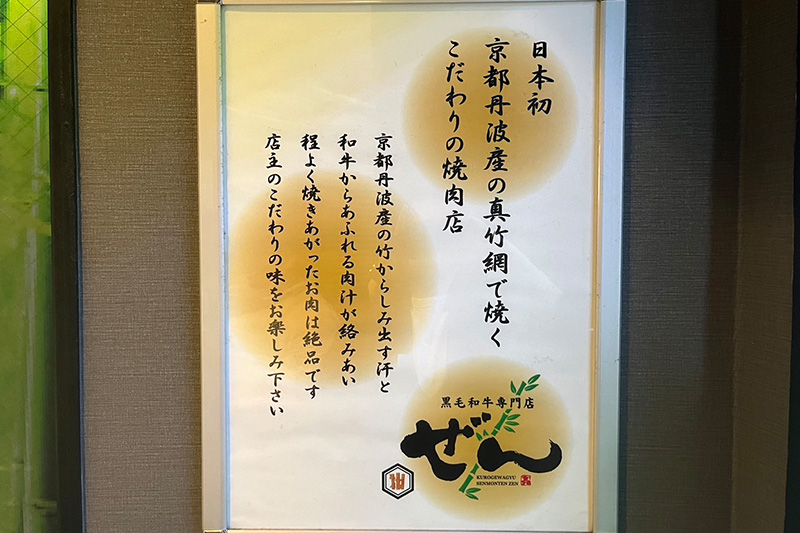 日本初
京都丹波産の真竹網で焼く
こだわりの焼肉店
京都丹波産の竹からしみ出す汗と
和牛からあふれる肉汁が絡みあい
程よく焼きあがったお肉は絶品です
店主のこだわりの味をお楽しみ下さい
黒毛和牛専門店
ぜん
KUROGEWAGYU
SENMONTEN ZEN